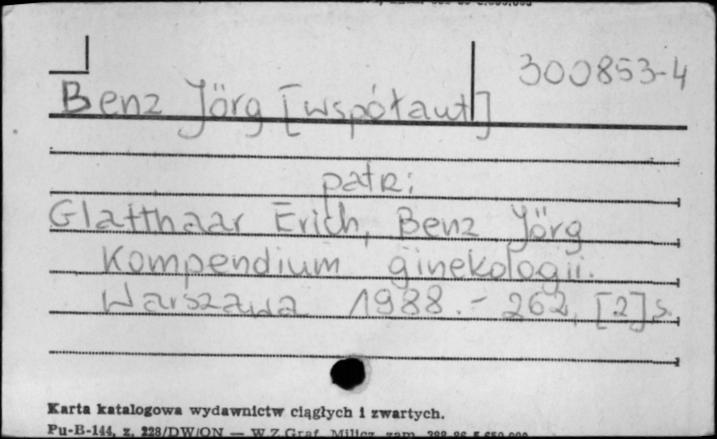 300853-4
Benz Jörg [współaut]
patrz:
Glatthaar Erich, Benz Jörg
Kompendium ginekologii.
Warszawa 1988. - 262, [2] s.
Karta katalogowa wydawnictw ciągłych i zwartych.
Pu-B-144, z. 228/DW/ON — W.Z.Graf. Milicz, zam.